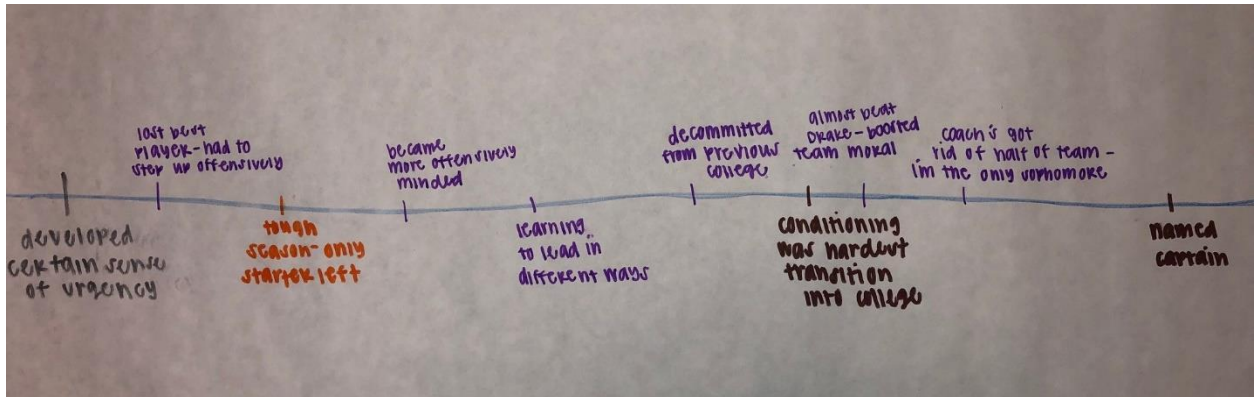 developed
certain sense
of urgency
lost best
player-had to
step up offensively
tough
season-only
starter left
became
more offensively
minded
learning
to lead in
different ways
decommitted
from previous
college
conditioning
was hardest
transition
into college
almost beat
Drake-boosted
team moral
coach's got
rid of half of team-
i'm the only sophomore
named
captain